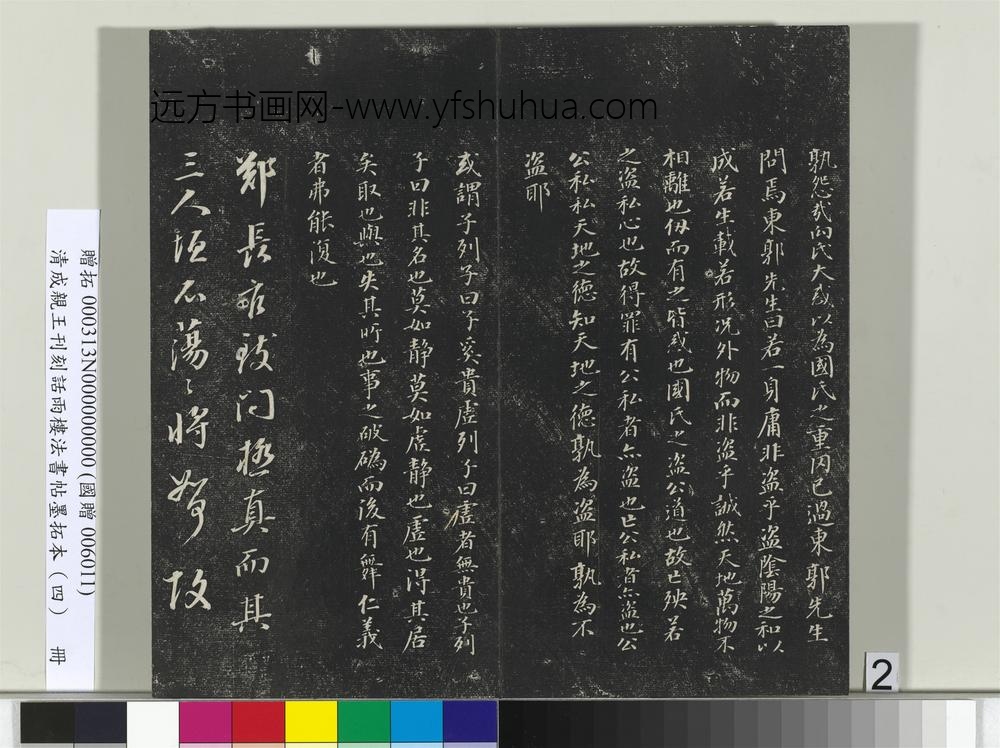 远方书画网-www.yfshuhua.com
孰怨哉向氏大惑以為國氏之重罔已過東郭先生
問焉東郭先生曰若一身庸非盜乎盜陰陽之和以
成若生載若形况外物而非盜乎誠然天地萬物不
相離也仞而有之皆惑也國氏之盜公道也故亡殃若
之盜私心也故得罪有公私者亦盜也亡公私者亦盜也公
公私私天地之德知天地之德孰為盜耶孰為不
盜耶
或謂子列子曰子奚貴虛列子曰虛者無貴也子列
子曰非其名也莫如靜莫如虛靜也虛也得其居
矣取也與也失其所也事之破䃣而後有舞仁義
者弗能復也
鄭長者致門極真而其
三人垣石蕩〻將 故
贈拓 000313N000000000 (國贈 006011)
清成親王刊刻話雨樓法書帖墨拓本(四) 冊
2